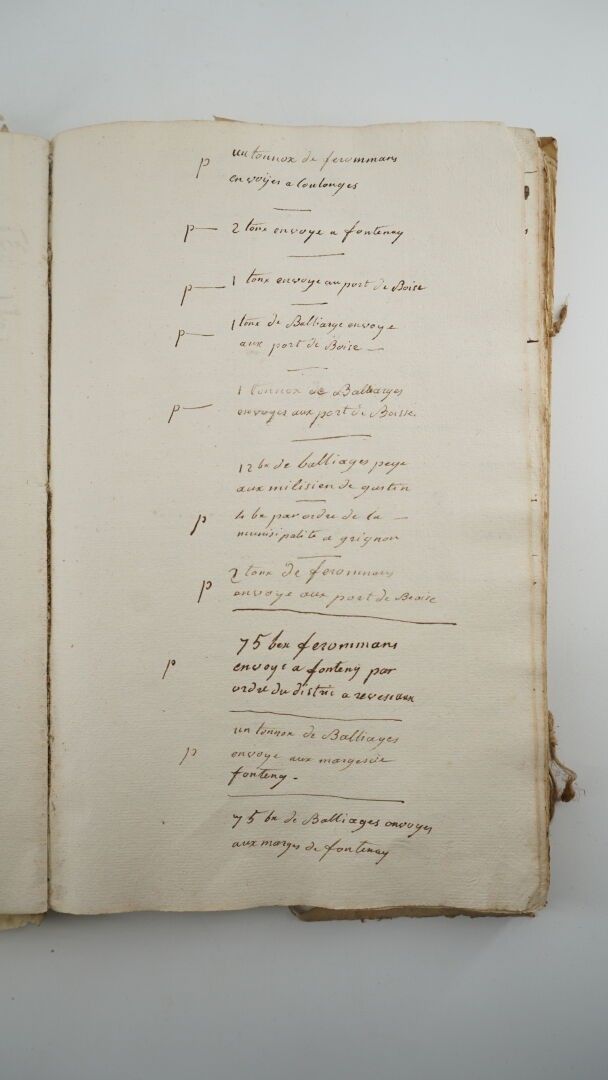 p un tonnox de ferommans
envoÿes a Coulonges
p— 2 tonx envoye a fontenay
p— 1 tonx envoye au port de Boise
p— 1 tonx de Balliarge envoye
aux port de Boise —
p— 1 tonnox de Balliarges
envoyes aux port de Boisse
12 bx de balliages peye
aux milisien de
p 4 bx par ordre de la —
munisipalite a grignon
p 2 tonx de ferommans
envoye aux port de Beoise
p 75 bex ferommans
envoye a fonteny par
ordre du distric a reveseaux
p un tonnox de Balliages
envoye aux
fonteny -
75 bx de Balliages envoyes
aux marges de fontenay